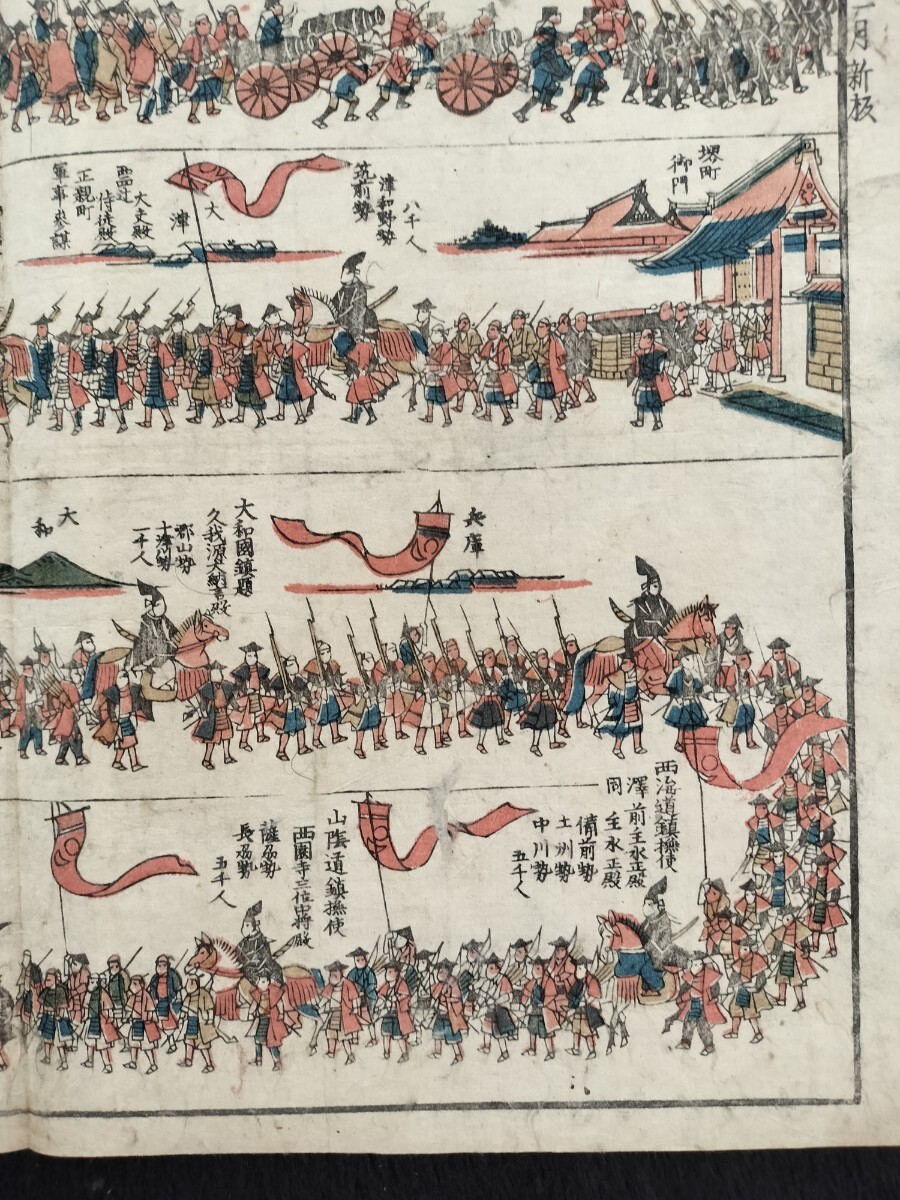 月新板
堺町
御門
八千人
津和野勢
筑前勢
大津
大夫殿
侍従殿
正親町
軍事参謀
兵庫
大和國鎮撫
久我源大納言殿
郡山勢
十津川勢
一千人
大和
西海道鎮撫使
澤前主水正殿
同主水正殿
備前勢
土州勢
中川勢
五千人
山陰道鎮撫使
西園寺三位中将殿
薩刕勢
長刕勢
五千人